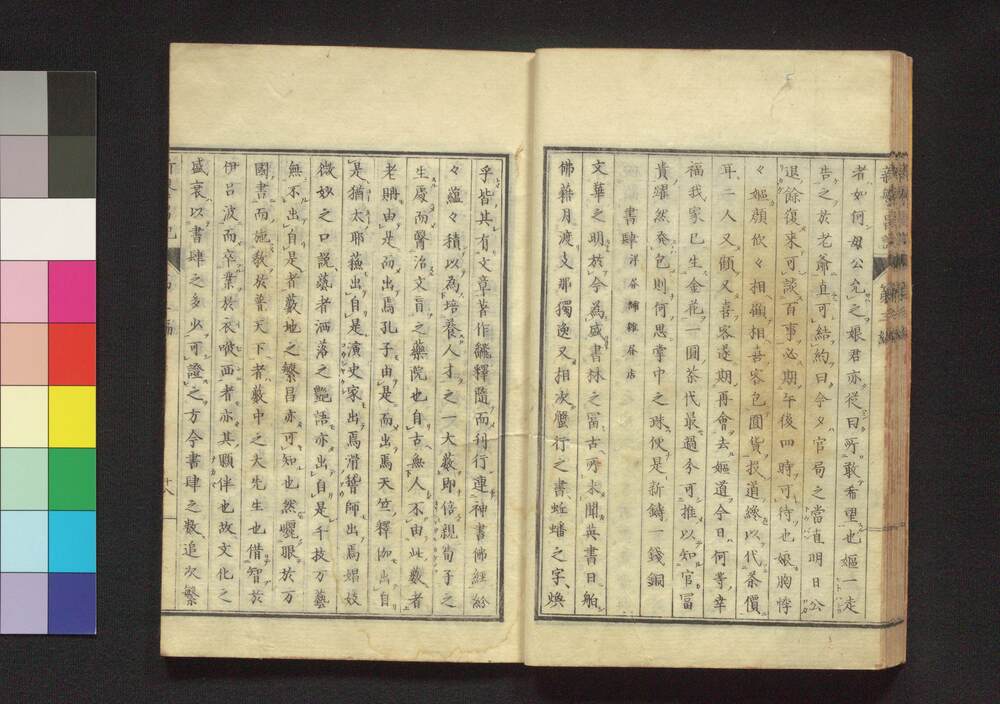 者如何如公允之娘君亦従曰所敢希望也嫗一走
告之於老爺直可結約曰今夕官局之當直明日公
退餘復来可談百事必期午後四時可待也娘胸悸
々嫗顔佽々相獻相喜客包圓貨投道纔以代茶價
耳二人又顧又喜客遂期再會去嫗道今日何等幸
福我家已生金花一圓茶代最過今可推以知官冨
貴燿然発包則何思掌中之珠便是新鋳一錢銅
書肆 洋谷舗雑谷店
文華之明於今為盛書林之冨古所未聞英書日舶
佛藉月渡支那獨逸又相次盤行之書蚯蟠之字煥
乎皆其有文章著作飜釋随而利行連神書佛經紛
々蘊々積以為培養人才之一大藪即倍親荀子之
生慶而醫治文盲之藥院也自古無人不由此藪者
老聃由是而出焉孔子由是而出焉天竺釋伽出自
是猶太耶蘓出自是演史家出焉滑稽師出焉娼妓
微妙之口説藝者洒落之艶語亦出自是千技万藝
無不出自是者藪地之繁昌亦可知也然矖眼於万
國書而施敎於普天下者藪中之大先生也借智於
伊呂波而卒業於衣嗷西者亦其顆伴也故文化之
盛衰以書肆之多少可證之方今書肆之数追次繁
十八